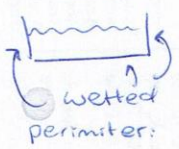 wetted
perimiter: